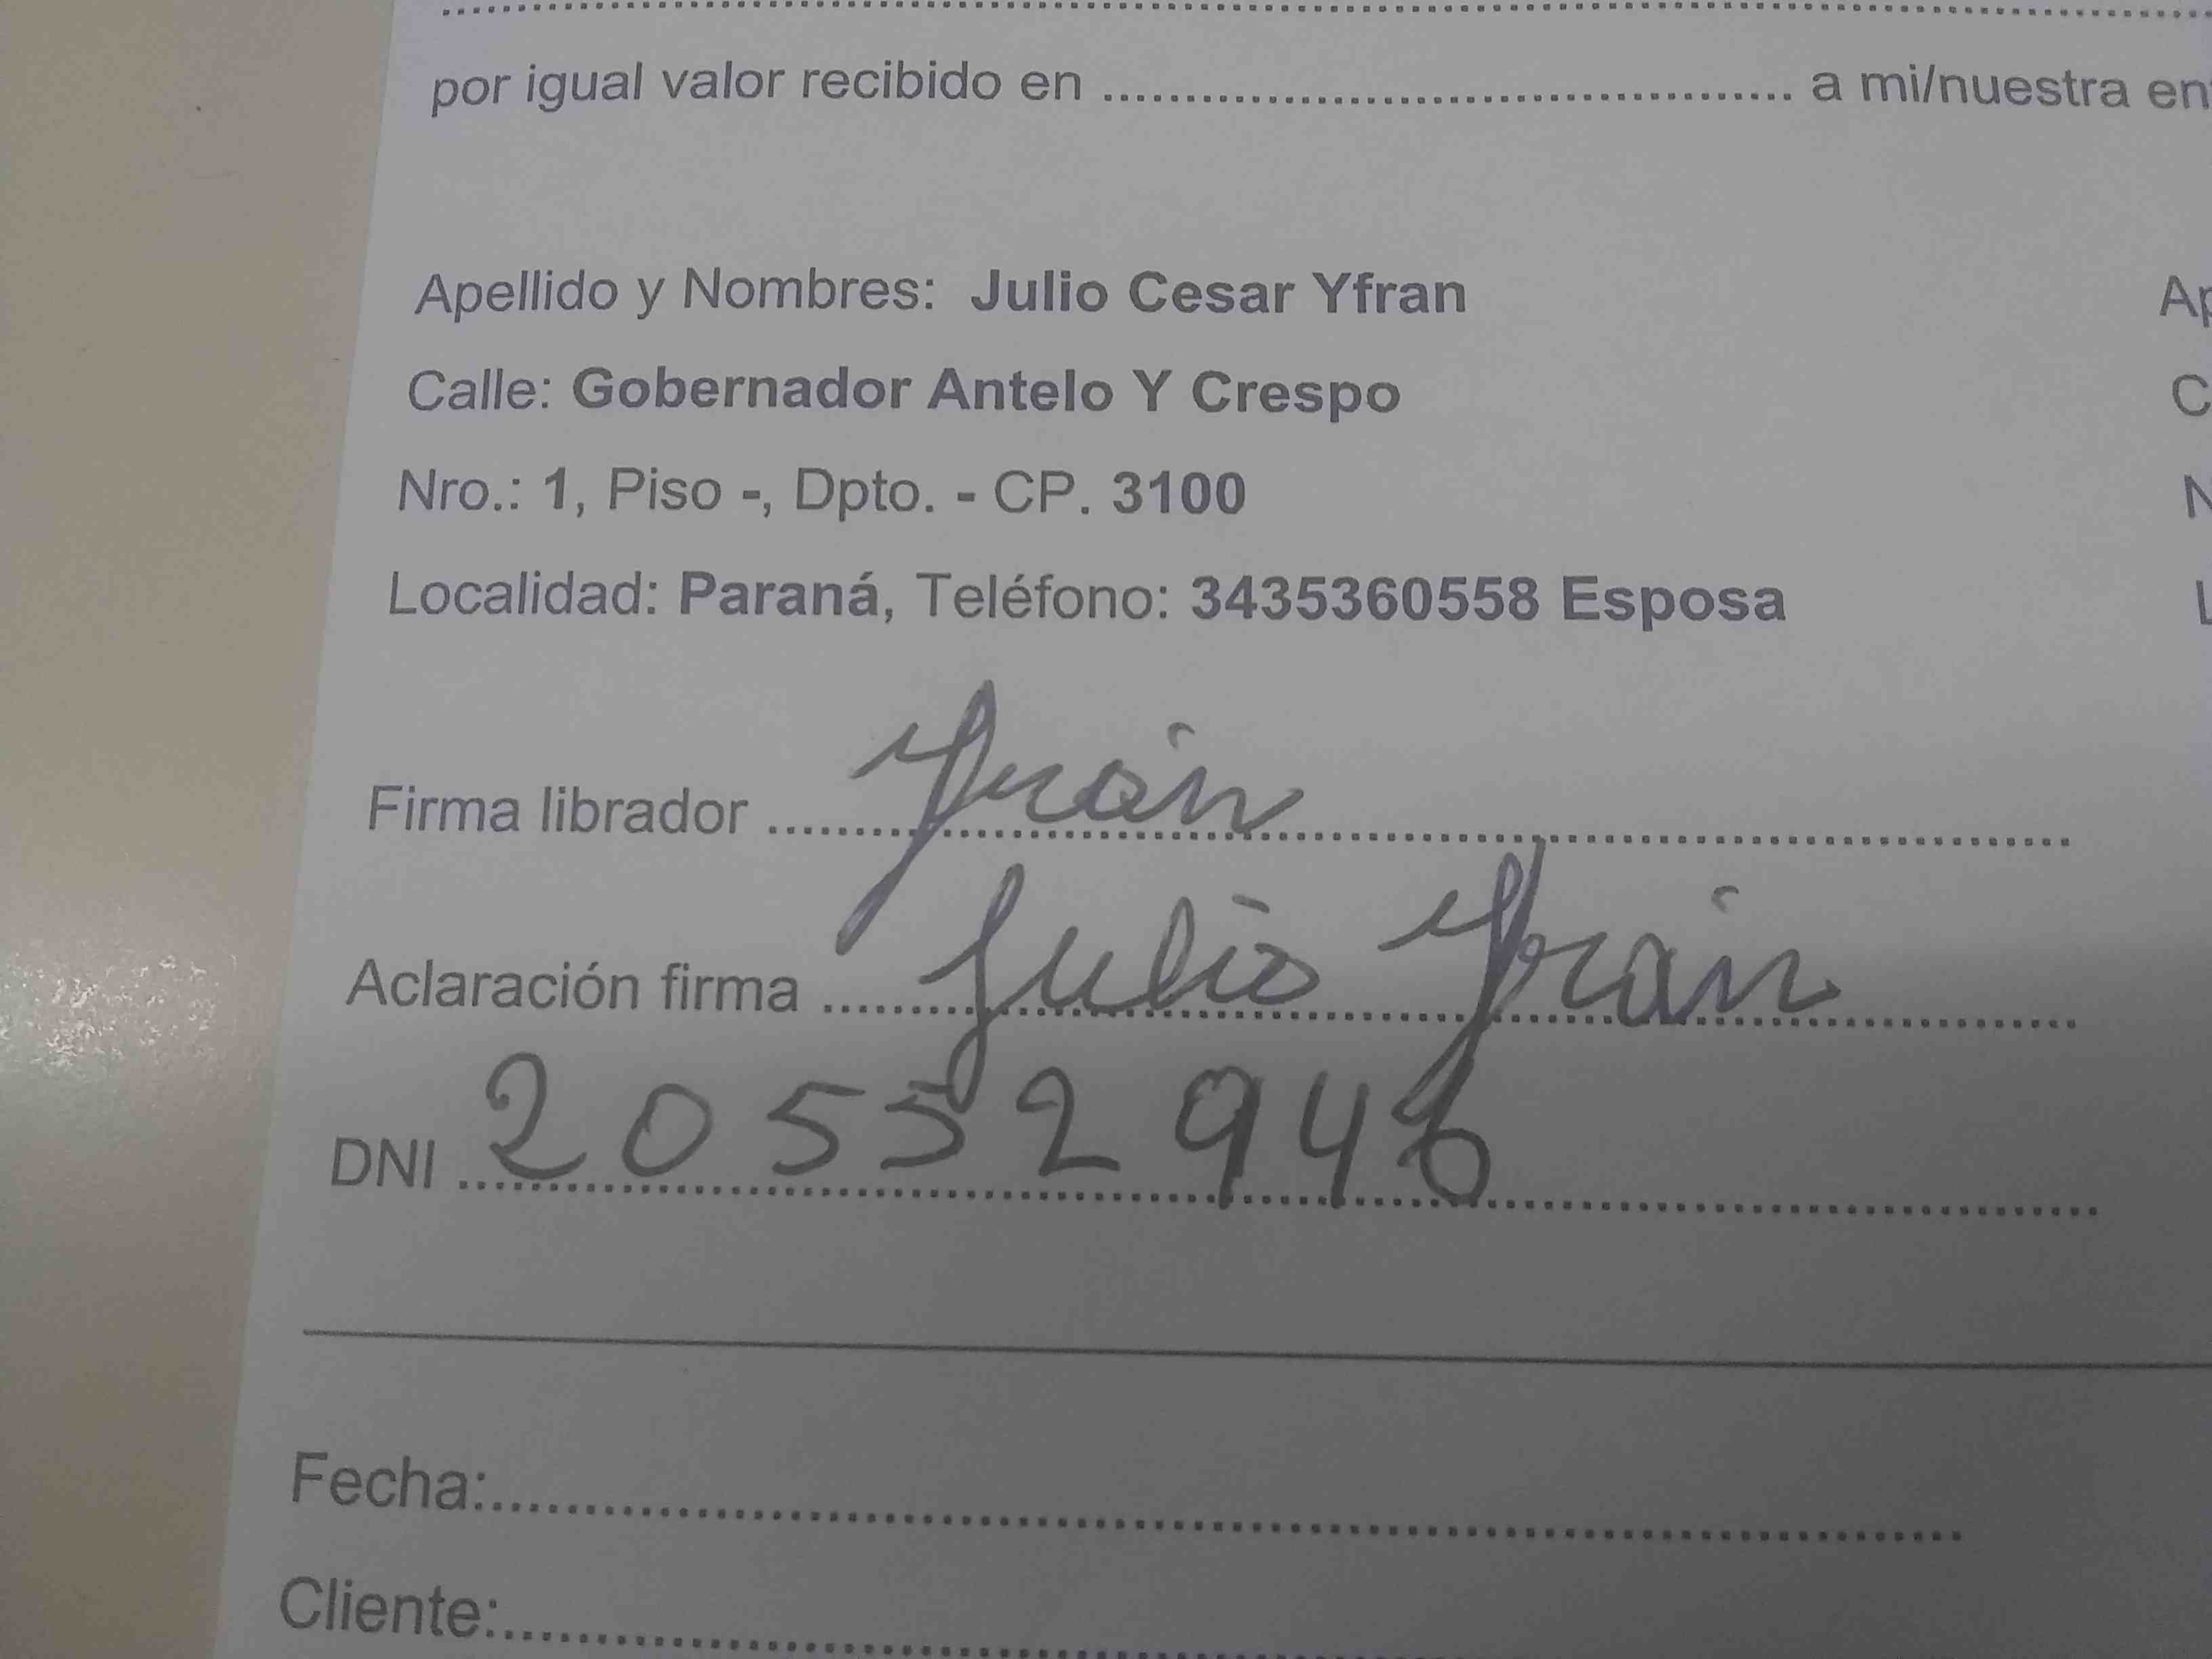 por igual valor recibido en ........................................ a mi/nuestra en
Apellido y Nombres: Julio Cesar Yfran
Calle: Gobernador Antelo Y Crespo
Nro.: 1, Piso -, Dpto. - CP. 3100
Localidad: Paraná, Teléfono: 3435360558 Esposa
Firma librador Yfrán
Aclaración firma Julio Yfrán
DNI 20552946
Fecha:
Cliente: